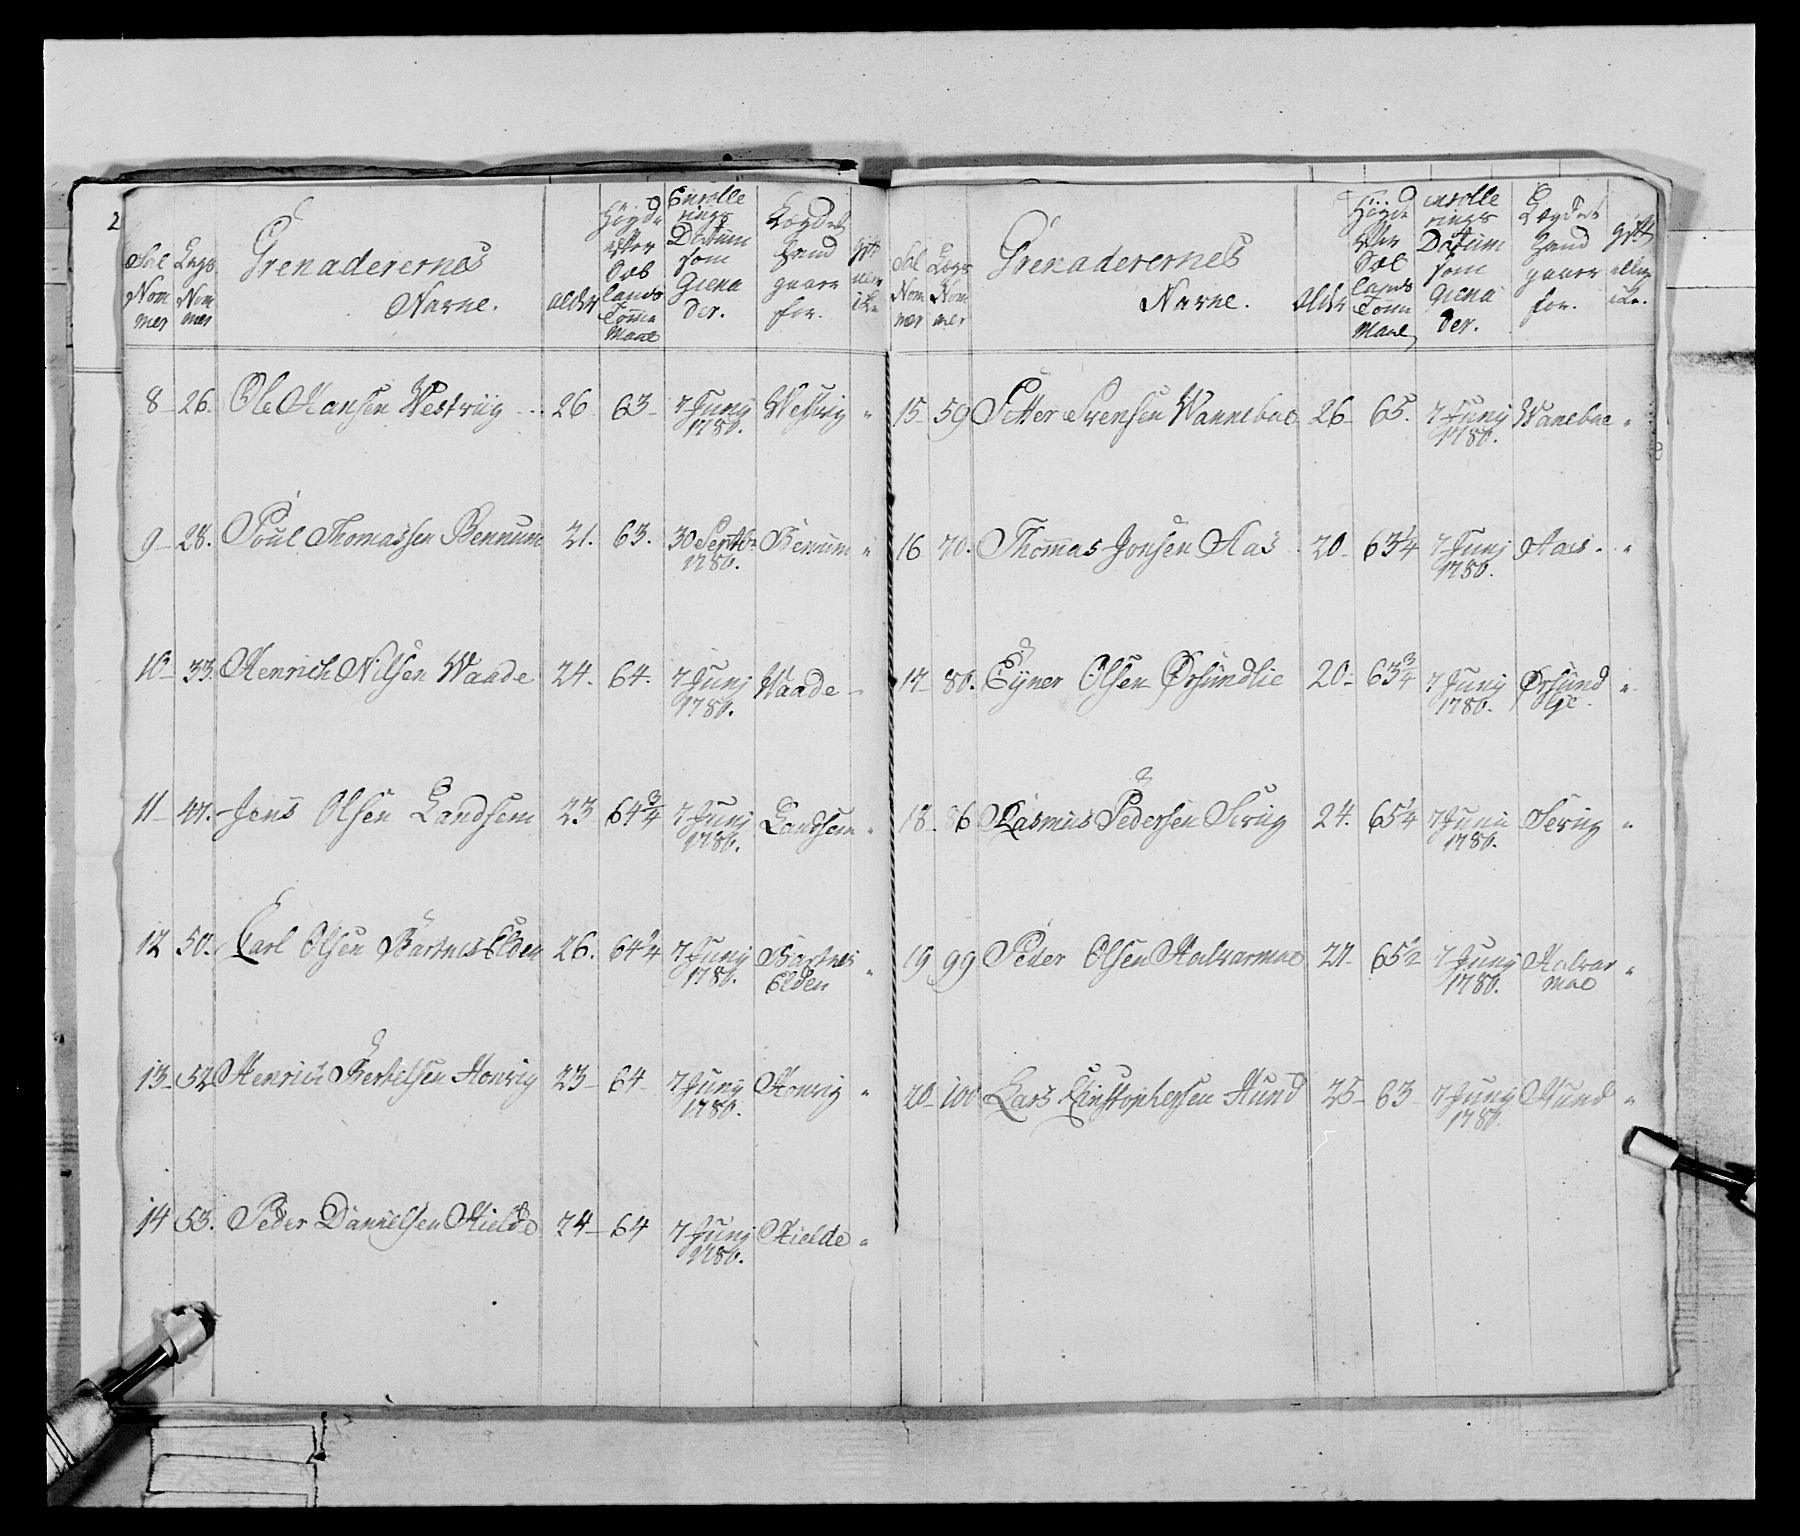 2
Sal Nom mer
Lægs Nom mer
Grenaderernes Navne.
Alder
Høyde efter Sæl lands Tomme Maal
Enrolle rings Datum som Grena der.
Lægdet Hand gaaer for.
gift eller ike
8 26. Ole Hansen Westviig 26 63 7 Junj 1780. Westvig "
9 28. Poul Thomassen Bennum 21. 63. 30 Septbr 1780. Benum "
10 33. Henrich Nilsen Waade 24. 64. 7 Junj 1780. Waade
11 47. Jens Olsen Landsem 23 64 3/4 7 Junj 1780. Landsem "
12 50. Carl Olsen Bartnes Elden 26. 64 1/4 7 Junj 1780. Bartnes Elden "
13 52 Henrich Bertelsen Honvig 23 64 7 Junj 1780. Honvig "
14 53. Peder Danielsen Hielde 24 64 7 Junj 1780. Hielde "
Sal Nom mer
Lægs Nom mer
Grenaderernes Navne.
Alder
Høyde efter Sæl lands Tomme Maal
enrolle rings Datum som Grena der.
Lægdet Hand gaaer for.
gift eller ike.
15 59 Petter Svensen Wannebae 26 65. 7 Junj 1780. Wanebae "
16 70. Thomas Jonsen Aas 20 63 1/4 7 Junj 1780. Aas "
17 80. Eyner Olsen Ørsundlie 20 63 3/4 7 Junj 1780. Ørsund lje "
18. 86 Rasmus Pedersen Servig 24. 65 1/4 7 Junj 1780. Servig "
19 99 Peder Olsen Halvarmoe 21 65 1/2 7 Junj 1780. Halvar moe "
20 100 Lars Christophersen Hund 25 63 7 Junj 1780. Hund "